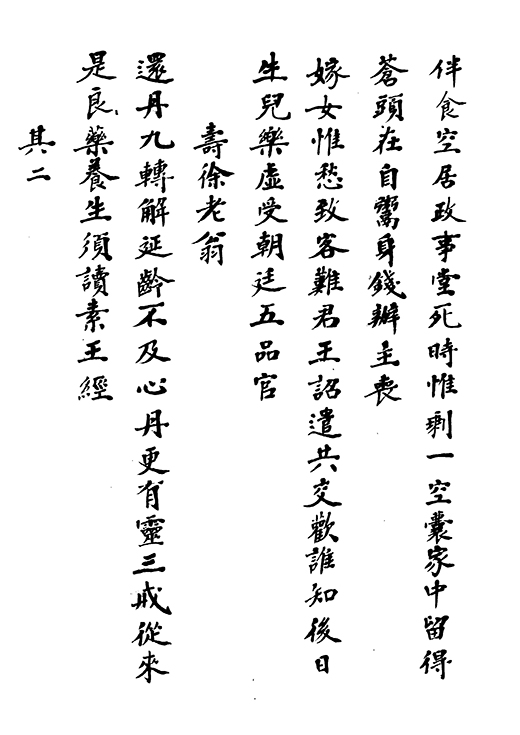 伴食空居政事堂死時惟剩一空囊家中留得
蒼頭在自鬻身錢辦主喪
嫁女惟愁致客難君王詔遣共交歡誰知後日
生兒樂虛受朝廷五品官
壽徐老翁
還丹九轉解延齡不及心丹更有靈三戒從來
是良藥養生須讀素王經
其二